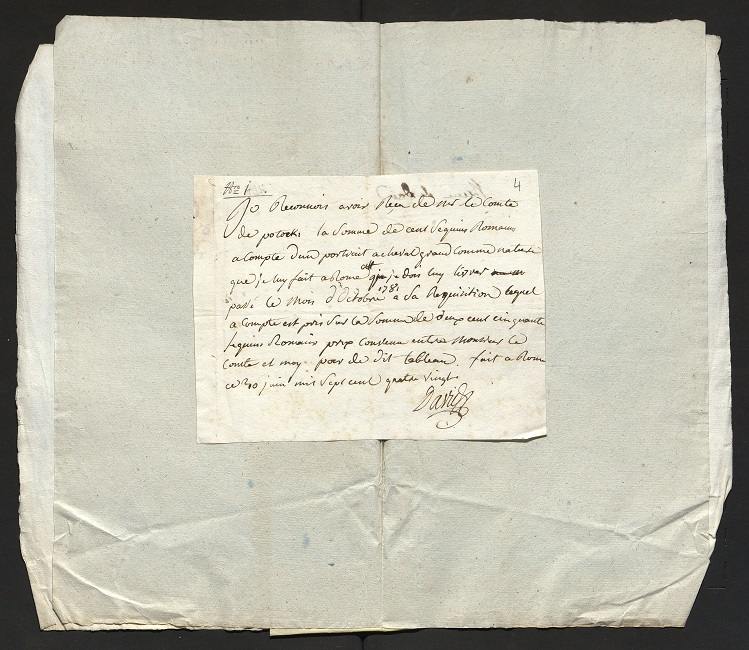 4
Je Reconnois avoir Reçu de mr le Comte
de potocki la Somme de cent Sequins Romains
a compte d'un portrait a cheval grand comme nature
que je luy fait a Rome et que je dois luy livrer
passé le mois d'Octobre 1781 a Sa Requisition lequel
a compte est pris Sur la Somme de deux cent cinquante
Sequins Romains prix convenu entre Monsieur le
Comte et moy pour de dit tableau. fait a Rome
ce 20 juin mil Sept cent quatre vingt
David